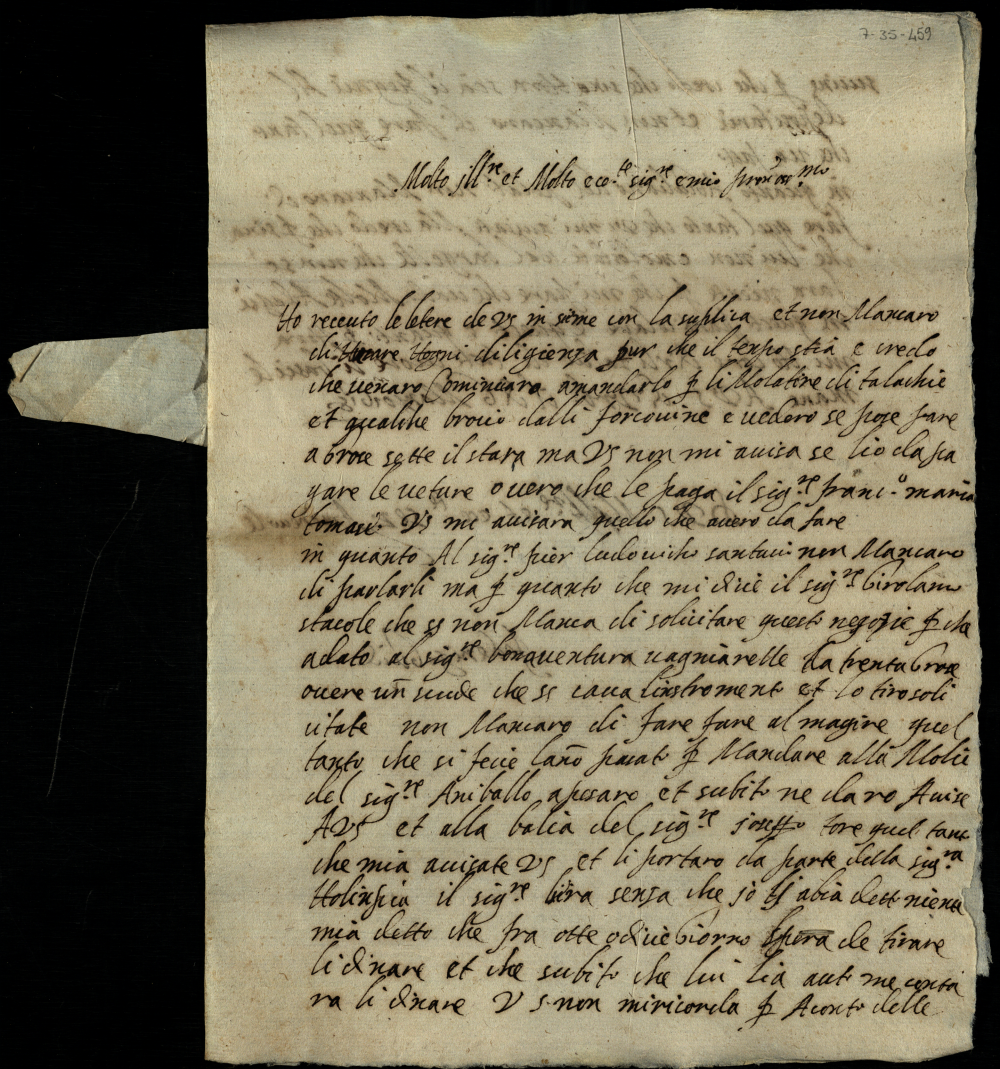 7-35-459
Molto Ill.re et Molto ecc.te sig.re e mio pron oss.mo
Ho receuto le letere de VS in sieme con la suplica et non Mancaro
di Hogni diligienza pur che il tenpo stia e credo
che venaro Cominciara amandarlo p li Molatire di talachie
et qualche brocio dalli forcovine e vedero se pose fare
abroce sette il stara ma VS non mi avisa se lio da pa
gare le veture overo che le paga il sig.re franc.o maria
tomasi VS mi avisara quello che avero da fare
in quanto Al sig.re pier ludovicho santuci non Mancaro
di parlarli ma p quanto che mi dice il sig.re Girolamo
stacole che ss non Manca di solicitare questo negozie p che
adato al sig.re bonaventura vagniarelle da trenta Groce
overe un scude che ss cava linstromento et lo tiro soli
citate non Mancaro di fare fare al magire quel
tanto che si fecie lano pasato p Mandare alla Molie
del sig.re Aniballo apesaro et subito ne daro Avise
AVS et alla balia del sig.re josefo tore quel tanto
che mia avisate VS et li portaro da parte della sig.ra
Holinpia il sig.re senza che jo li abia dett niente
mia detto che fra otte o diece Giorno spera de tirare
li dinare et che subito che lui lia auti me conta
ra li dinare VS non miricorda p Aconto delle